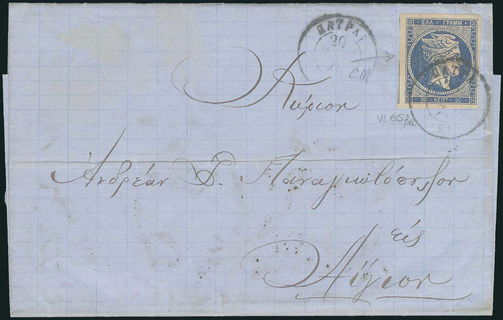 ΠΑΤΡΑΙ
20
ΕΛΛ. ΓΡΑΜΜ.
20 ΛΕΠΤ. 20
Κύριον
Ἀνδρέαν Δ. Παναγιωτόπουλον
εἰς
Αἴγιον